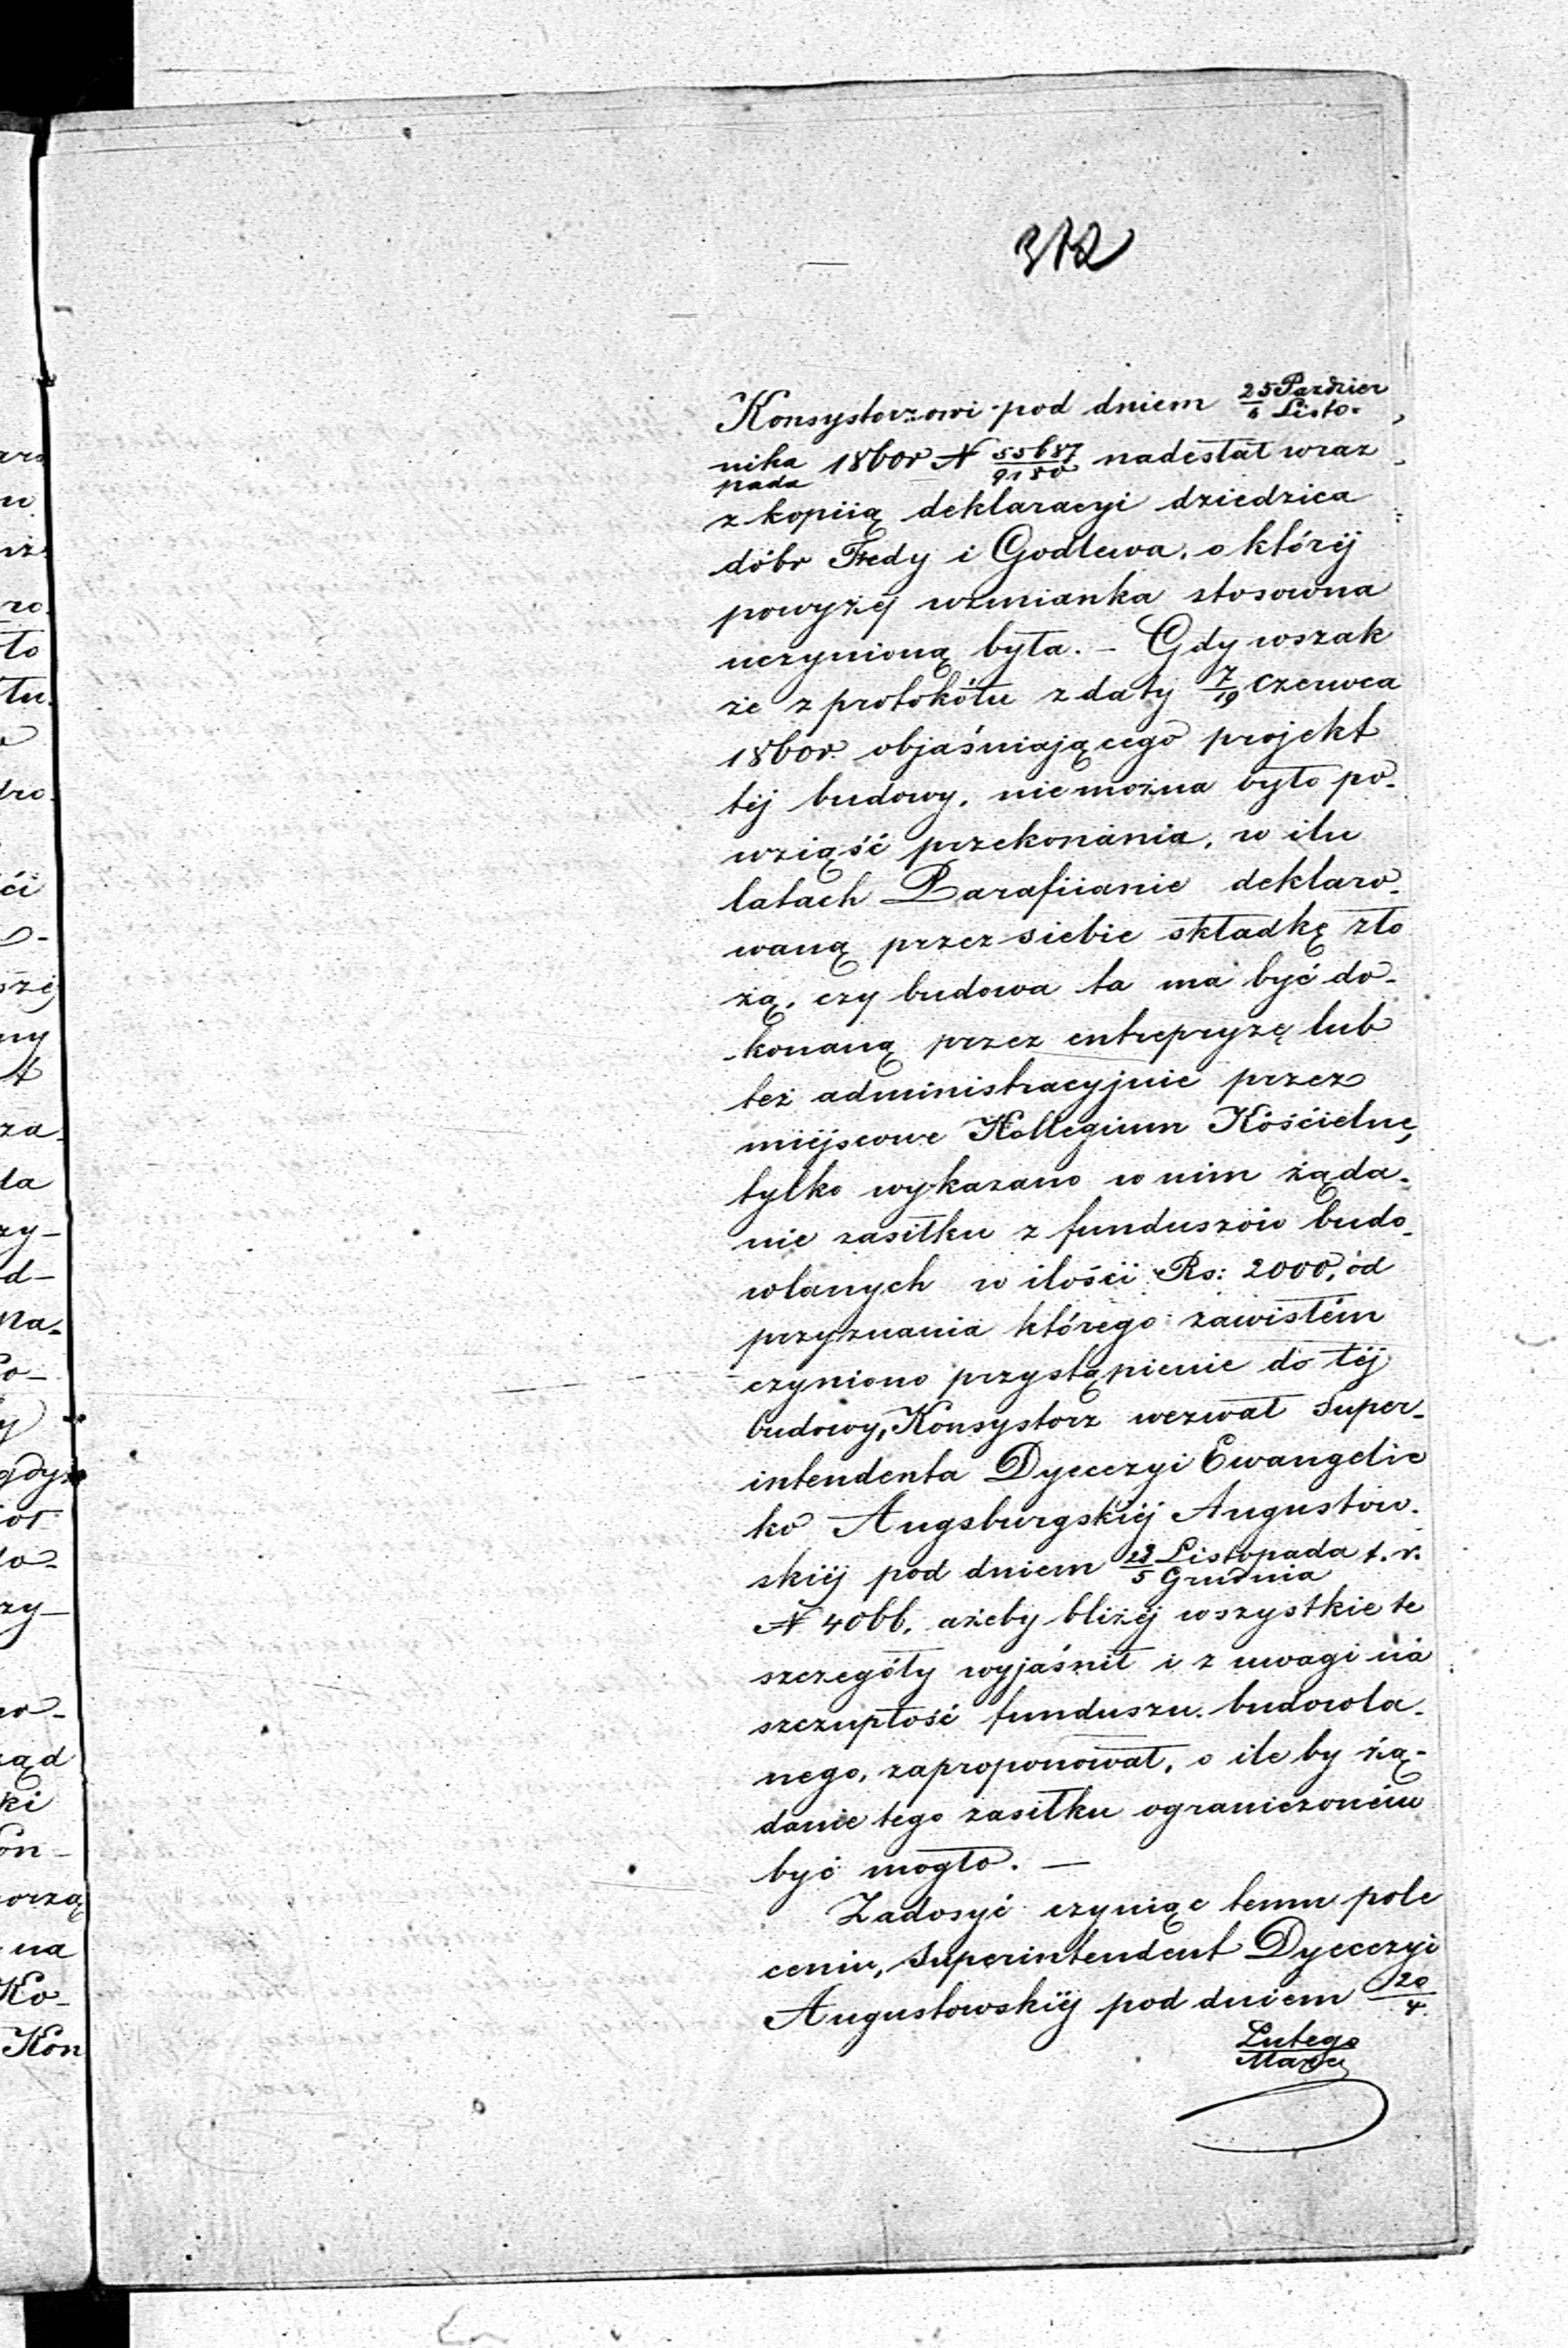 312
Konsystorzowi pod dniem 25 Paździer / 6 Listo-
nika / pada 1860r N 55687/9180 nadesłał wraz
z kopiią deklaracyi dziedzica
dóbr Fredy i Godlewa, o któréj
powyżéj wzmianka stosowna
uczynioną była. – Gdy wszak
że z protokółu z daty 7/19 Czerwca
1860r. objaśniającego projekt
téj budowy, niemożna było po-
wziąść przekonania, w ilu
latach Parafiianie deklaro-
waną przez siebie składkę zło
żą, czy budowa ta ma być do-
konaną przez entrepryzę lub
też administracyjnie przez
miéjscowe Kollegium Kościelne,
tylko wykazano w nim żąda-
nie zasiłku z funduszów budo-
wlanych w ilości Rs: 2000, od
przyznania którego zawisłém
czyniono przystąpienie do téj
budowy, Konsystorz wezwał Super-
intendenta Dyecezyi Ewangelic
ko Augsburgskiéj Augustow-
skiéj pod dniem 23 Listopada / 5 Grudnia t. r.
N 4066, ażeby bliżéj wszystkie te
szczegóły wyjaśnił i z uwagi na
szczupłość funduszu budowla-
nego, zaproponował, o ile by żą-
danie tego zasiłku ograniczoném
być mogło. —
Zadosyć czyniąc temu pole
ceniu, Superintendent Dyecezyi
Augustowskiéj pod dniem 20/4
Lutego / Marca